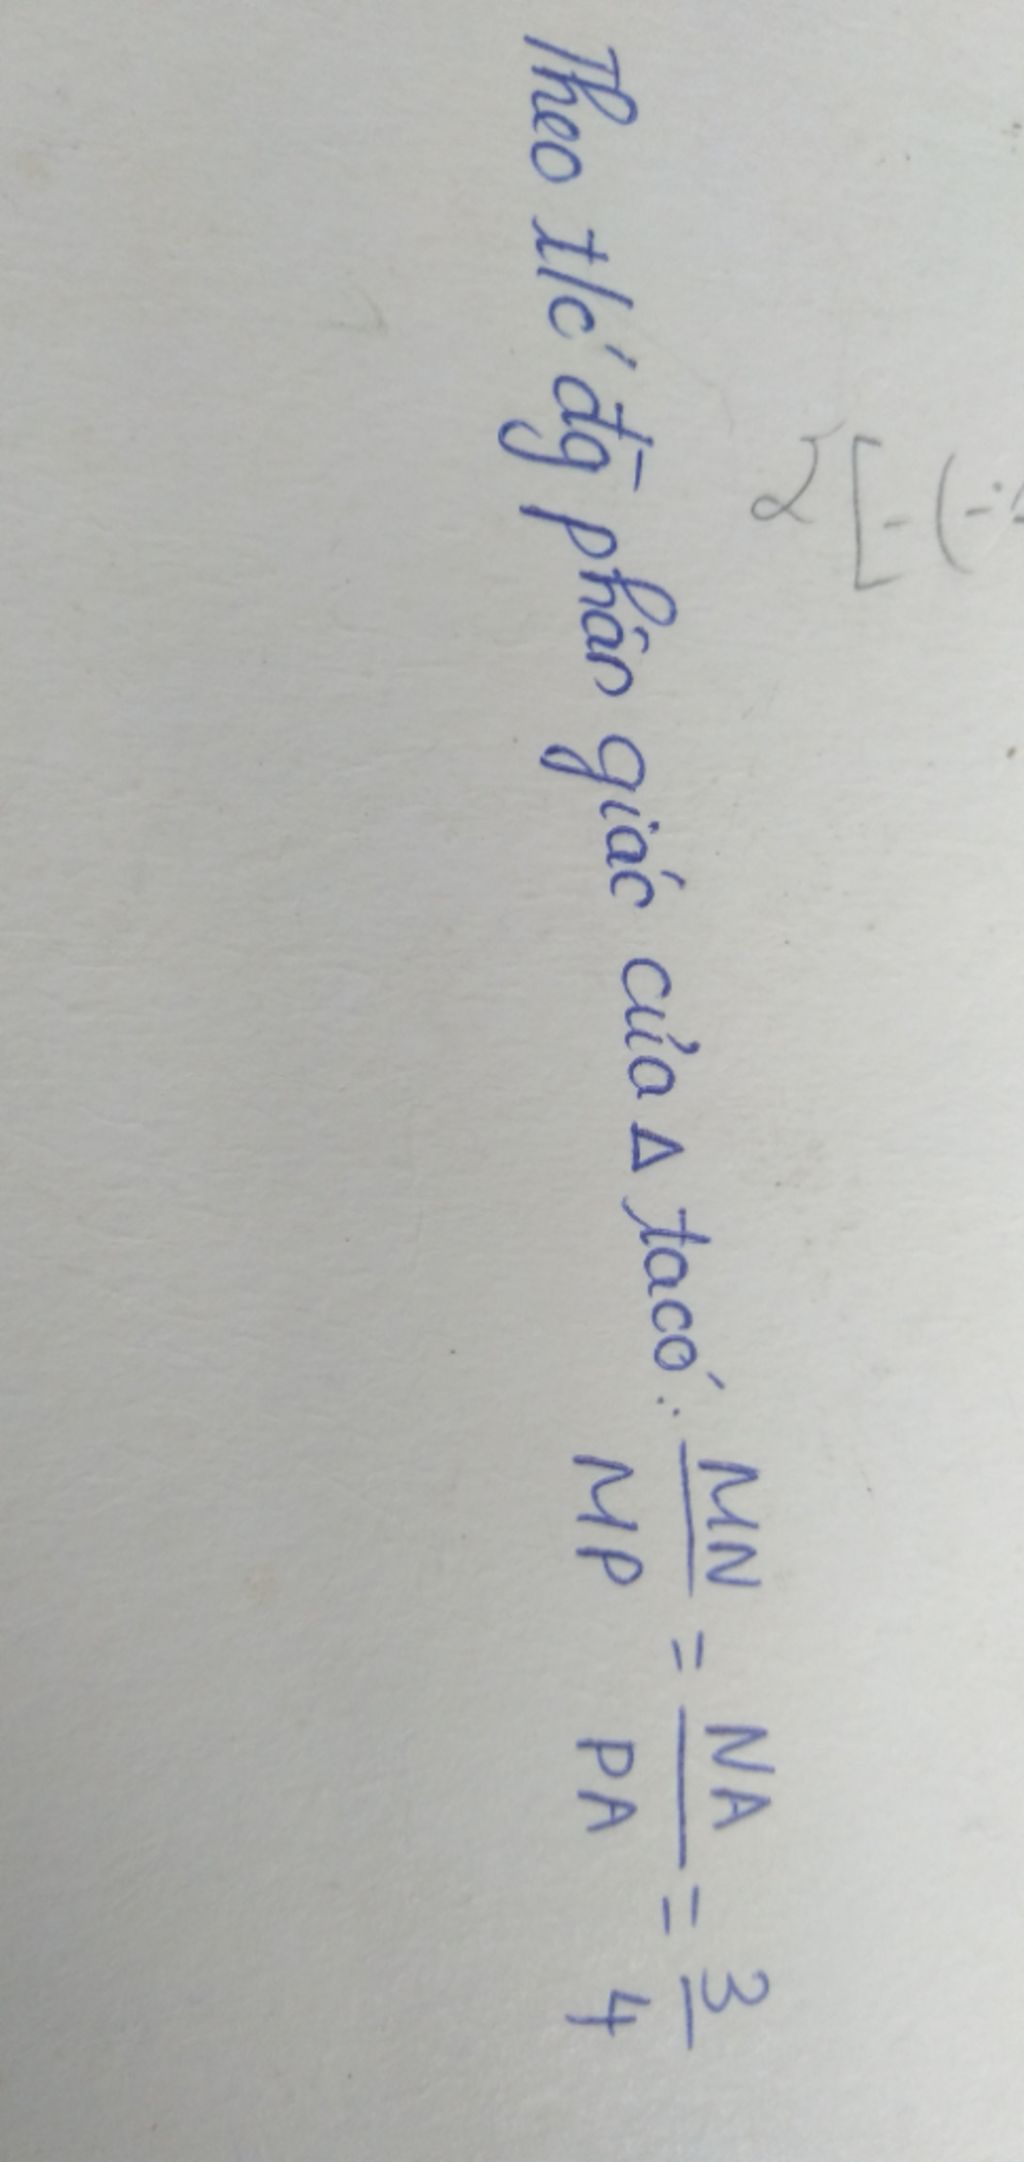 Theo t/c đg phân giác của Δ ta có: MN/MP = NA/PA = 3/4